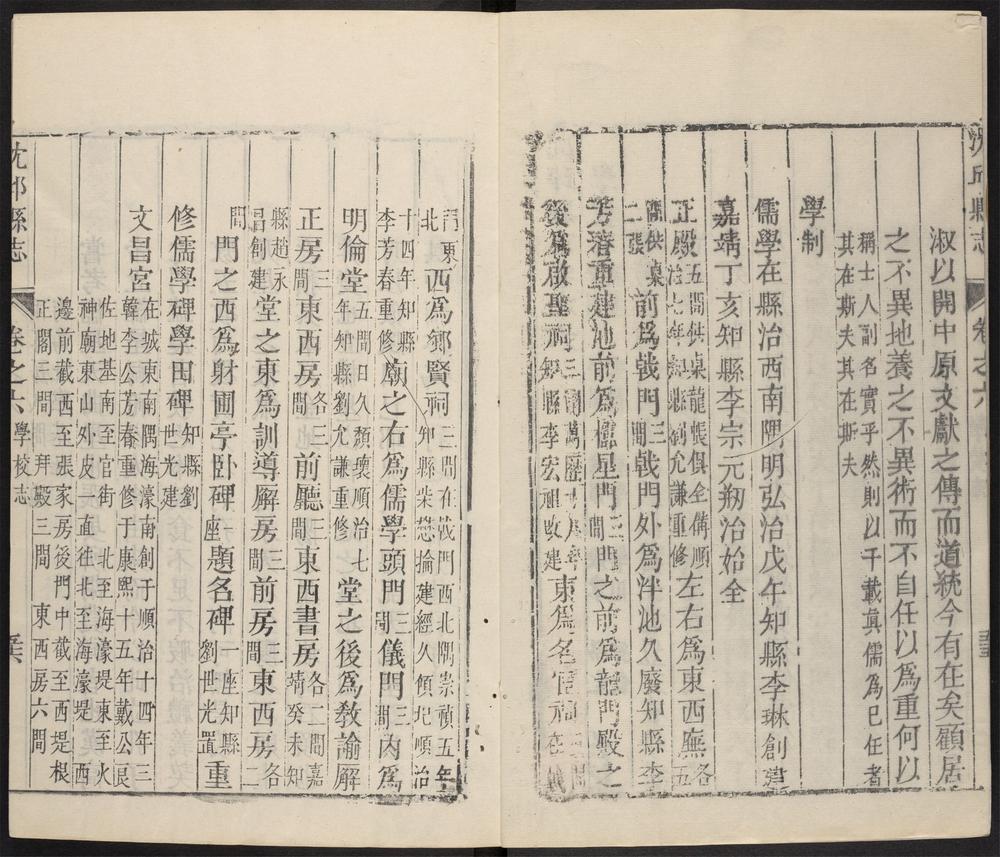 沈邱縣志
卷之六
淑以開中原文獻之傳而道統今有在矣顧居
之不異地養之不異術而不自任以為重何以
稱士人副名實乎然則以千載真儒為己任者
其在斯夫其在斯夫
學制
儒學在縣治西南隅明弘治戊午知縣李琳創建
嘉靖丁亥知縣李宗元剏治始全
正殿五間供桌龍帳俱全備順治七年知縣劉允謙重修左右為東西廡各五
間供桌二張前為戟門三間戟門外為泮池久廢知縣李
芳春重建池前為櫺星門三間門之前為龍門殿之
後為啟聖祠三間萬曆知縣李宏祖改建東為名宦祠三間在戟
門東北西為鄉賢祠三間在戟門西北隅崇禎五年
知縣柴懋掄建經久傾圮順治十四年知縣李芳春重修廟之右為儒學頭門三間儀門三間內為
明倫堂五間日久頹壞順治七年知縣劉允謙重修堂之後為教諭廨
正房三間東西房各三間前廳三間東西書房各二間嘉靖癸未知
縣趙永昌創建堂之東為訓導廨房三間前房三間東西房各二
間門之西為射圃亭臥碑一座題名碑一座知縣劉世光置重
修儒學碑學田碑知縣劉世光建
文昌宮在城東南隅海濠南創于順治十四年三
韓李公芳春重修于康熙十五年戴公良
佐地基南至官街 北至海濠堤東至火
神廟東山外皮一直往北至海濠堤 西
邊前截西至張家房後門中截至西堤根
正閣三間 拜殿三間 東西房六間
沈邱縣志
卷之六 學校志